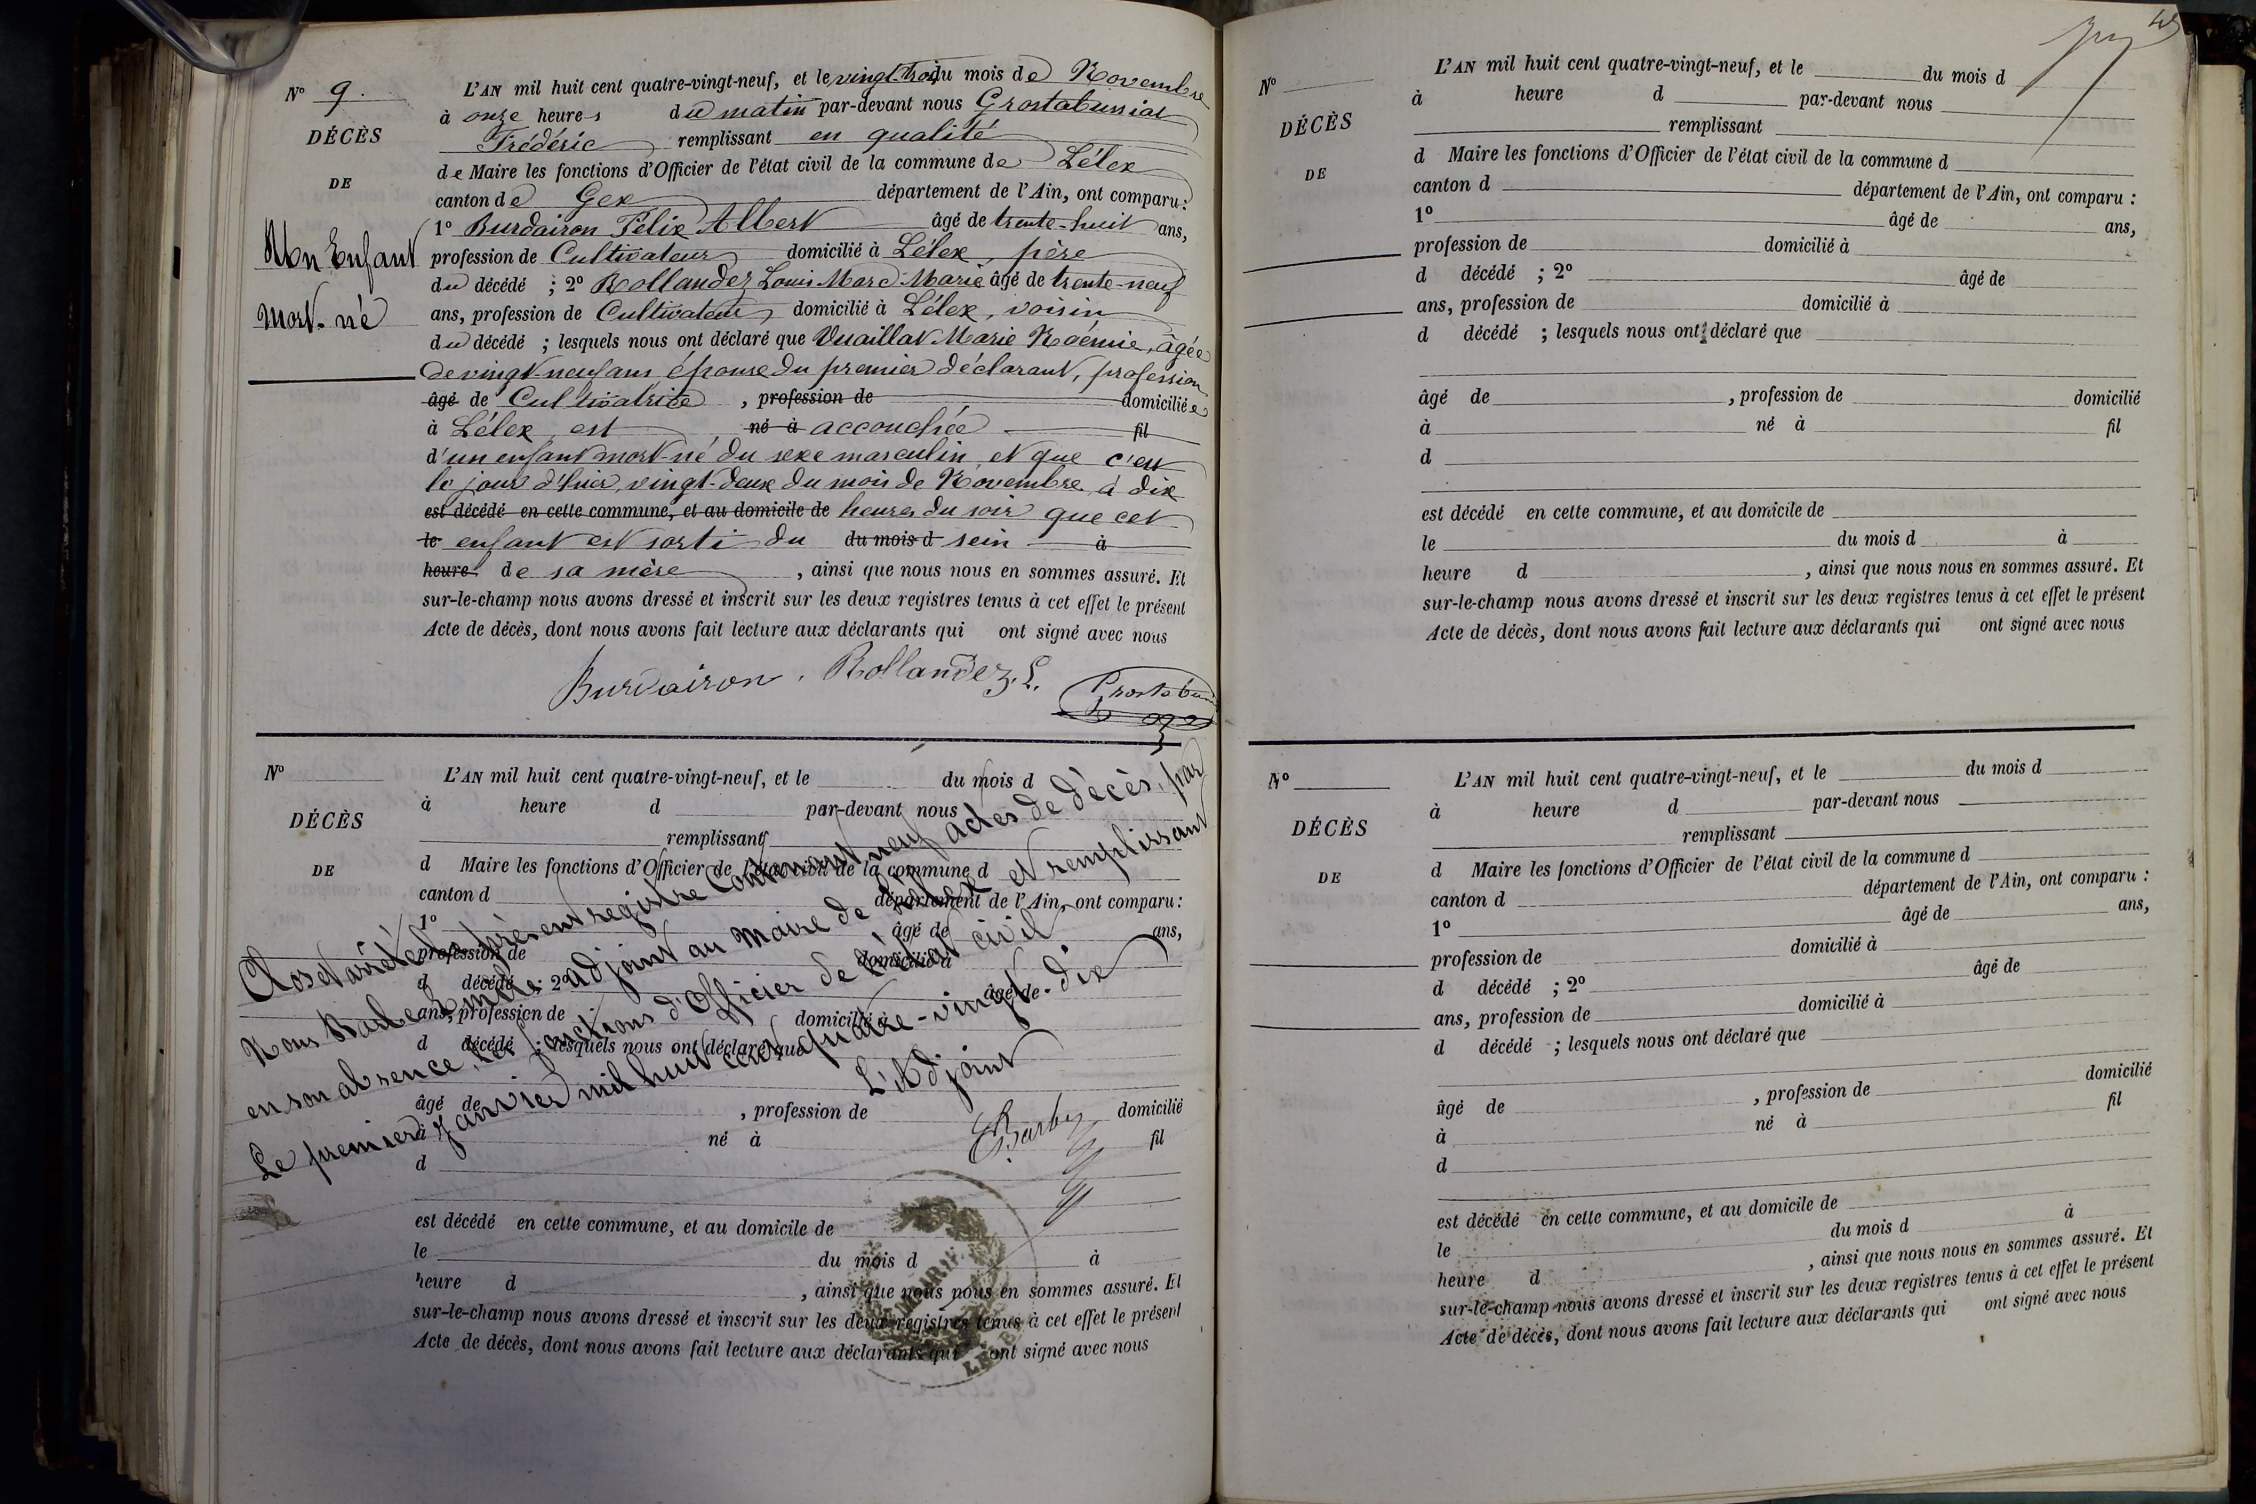 N° 9.
DÉCÈS
DE
Un Enfant
mort-né
L'AN mil huit cent quatre-vingt-neuf, et le vingt-trois du mois de Novembre
à onze heures du matin par-devant nous Grostabussiat
Frédéric remplissant en qualité
de Maire les fonctions d'Officier de l'état civil de la commune de Lélex
canton de Gex département de l'Ain, ont comparu :
1° Burdairon Félix Albert âgé de trente-huit ans,
profession de Cultivateur domicilié à Lélex, père
du décédé ; 2° Rollandez Louis Marc Marie âgé de trente-neuf
ans, profession de Cultivateur, domicilié à Lélex, voisin
du décédé ; lesquels nous ont déclaré que Vuaillat Marie Noémie, âgée
de vingt-neuf ans épouse du premier déclarant, profession
âgé de Cultivatrice , profession de domiciliée
à Lélex, est né à accouchée fil
d'un enfant mort-né du sexe masculin et que c'est
le jour d'hier, vingt-deux du mois de Novembre à dix
est décédé en cette commune, et au domicile de heures du soir que cet
le enfant est sorti du du mois d sein à
heure de sa mère , ainsi que nous nous en sommes assuré. Et
sur-le-champ nous avons dressé et inscrit sur les deux registres tenus à cet effet le présent
Acte de décès, dont nous avons fait lecture aux déclarants qui ont signé avec nous
Burdairon. Rollandez. L.
N°
DÉCÈS
DE
L'AN mil huit cent quatre-vingt-neuf, et le du mois d
à heure d par-devant nous
remplissant
d Maire les fonctions d'Officier de l'état civil de la commune d
canton d département de l'Ain, ont comparu :
1° âgé de ans,
profession de domicilié à
d décédé ; 2° âgé de
ans, profession de domicilié à
d décédé ; lesquels nous ont déclaré que
âgé de , profession de domicilié
à né à fil
d
est décédé en cette commune, et au domicile de
le du mois d à
heure d , ainsi que nous nous en sommes assuré. Et
sur-le-champ nous avons dressé et inscrit sur les deux registres tenus à cet effet le présent
Acte de décès, dont nous avons fait lecture aux déclarants qui ont signé avec nous
Clos et arrêté le présent registre Contenant neuf actes de décès, par
Nous adjoint au Maire de Lélex et remplissant
en son absence, les fonctions d'Officier de l'état civil
Le premier Janvier mil huit cent quatre-vingt-dix
L'Adjoint
Barbe
MAIRIE
LÉLEX
N°
DÉCÈS
DE
L'AN mil huit cent quatre-vingt-neuf, et le du mois d
à heure d par-devant nous
remplissant
d Maire les fonctions d'Officier de l'état civil de la commune d
canton d département de l'Ain, ont comparu :
1° âgé de ans,
profession de domicilié à
d décédé ; 2° âgé de
ans, profession de domicilié à
d décédé ; lesquels nous ont déclaré que
âgé de , profession de domicilié
à né à fil
d
est décédé en cette commune, et au domicile de
le du mois d à
heure d , ainsi que nous nous en sommes assuré. Et
sur-le-champ nous avons dressé et inscrit sur les deux registres tenus à cet effet le présent
Acte de décès, dont nous avons fait lecture aux déclarants qui ont signé avec nous
N°
DÉCÈS
DE
L'AN mil huit cent quatre-vingt-neuf, et le du mois d
à heure d par-devant nous
remplissant
d Maire les fonctions d'Officier de l'état civil de la commune d
canton d département de l'Ain, ont comparu :
1° âgé de ans,
profession de domicilié à
d décédé ; 2° âgé de
ans, profession de domicilié à
d décédé ; lesquels nous ont déclaré que
âgé de , profession de domicilié
à né à fil
d
est décédé en cette commune, et au domicile de
le du mois d à
heure d , ainsi que nous nous en sommes assuré. Et
sur-le-champ nous avons dressé et inscrit sur les deux registres tenus à cet effet le présent
Acte de décès, dont nous avons fait lecture aux déclarants qui ont signé avec nous